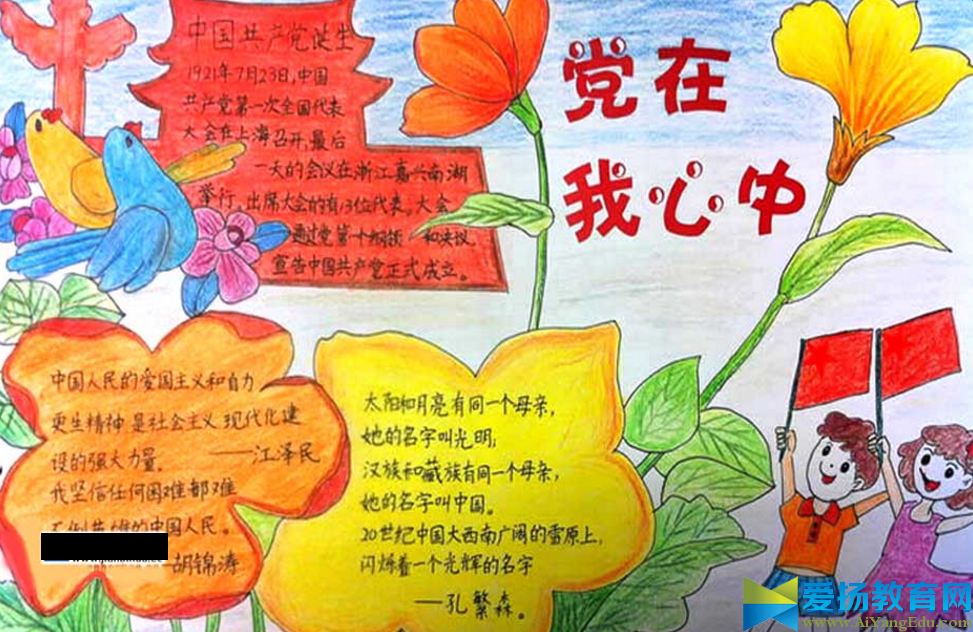 党在
我心中
中国共产党诞生
1921年7月23日,中国
共产党第一次全国代表
大会在上海召开,最后
一天的会议在浙江嘉兴南湖
举行。出席大会的有13位代表。大会
通过党第一个纲领 和决议,
宣告中国共产党正式成立。
中国人民的爱国主义和自力
更生精神是社会主义现代化建
设的强大力量。 ——江泽民
我坚信任何困难都难
不倒英雄的中国人民。
胡锦涛
太阳和月亮有同一个母亲,
她的名字叫光明;
汉族和藏族有同一个母亲,
她的名字叫中国。
20世纪中国大西南广阔的雪原上,
闪烁着一个光辉的名字
——孔繁森。
爱扬教育网
www.AiYangEdu.com